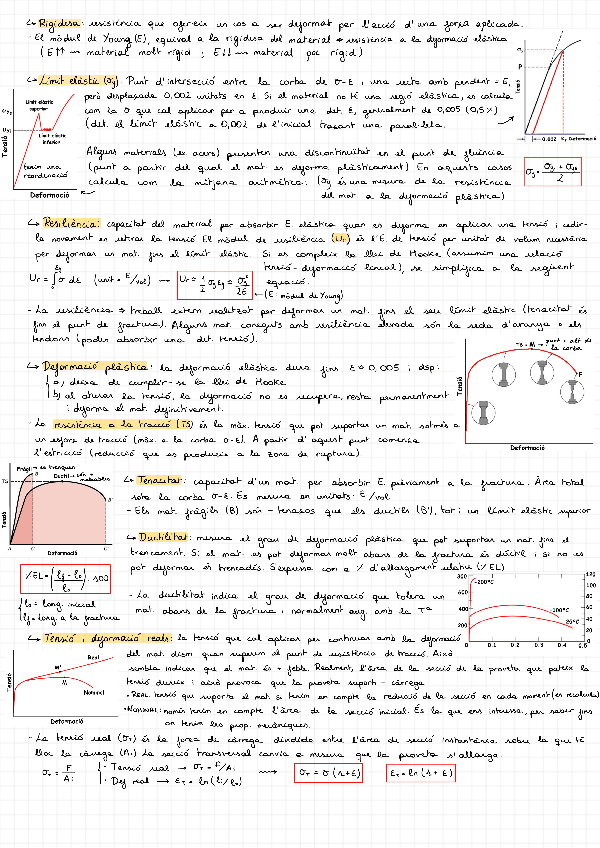 ↳ Rigidesa: resistència que ofereix un cos a ser deformat per l'acció d'una força aplicada.
· El mòdul de Young (E), equival a la rigidesa del material → resistència a la deformació elàstica
(E↑↑ → material molt rígid ; E↓↓ → material poc rígid)
↳ Límit elàstic (σy) Punt d'intersecció entre la corba de σ-ε i una recta amb pendent = E,
però desplaçada 0,002 unitats en ε. Si el material no té una regió elàstica, es calcula
com la σ que cal aplicar per a produir una det. ε, generalment de 0,005 (0,5%)
(det. el límit elàstic a 0,002 de l'inicial traçant una paral·lela.
Límit elàstic superior
Límit elàstic inferior
tenim una reordenació
Tensió
Deformació
σ
P
0.002
Deformació
Alguns materials (ex. acers) presenten una discontinuïtat en el punt de fluència
(punt a partir del qual el mat. es deforma plàsticament) En aquests casos
calcula com la mitjana aritmètica: (σy és una mesura de la resistència
del mat. a la deformació plàstica)
↳ Resiliència: capacitat del material per absorbir E. elàstica quan es deforma en aplicar una tensió i cedir-
la novament en retirar la tensió. El mòdul de resiliència (Ur) és l'E. de tensió per unitat de volum necessària
per deformar un mat. fins el límit elàstic. Si es compleix la llei de Hooke (assumim una relació
tensió-deformació lineal), se simplifica a la següent
equació.
Ur = ∫σ dε (unit = E/vol) → Ur = 1/2 σy εy = σy²/2E
← (E: mòdul de Young)
- La resiliència → treball extern realitzat per deformar un mat. fins el seu límit elàstic (tenacitat és
fins el punt de fractura). Alguns mat. coneguts amb resiliència elevada són la seda d'aranya o els
tendons (poden absorbir una det. tensió).
↳ Deformació plàstica: la deformació elàstica dura fins ε≈0,005 i dsp:
a) deixa de cumplir-se la llei de Hooke
b) al aturar la tensió, la deformació no es recupera, resta permanentment
i deforma el mat. definitivament.
- La resistència a la tracció (TS) és la màx. tensió que pot suportar un mat. sotmès a
un esforç de tracció (màx. a la corba σ-ε). A partir d'aquest punt comença
l'estricció (reducció que es produeix a la zona de ruptura)
TS
M
punt + alt de la corba
F
Tensió
Deformació
Fràgil → es trenquen
Dúctil → són + mal·leables
TS
Tensió
Deformació
↳ Tenacitat: capacitat d'un mat. per absorbir E. prèviament a la fractura. Àrea total
sota la corba σ-ε. Es mesura en unitats: E/vol
- Els mat. fràgils (B) són - tenaços que els dúctils (B'), tot i un límit elàstic superior
↳ Ductilitat: mesura el grau de deformació plàstica que pot suportar un mat. fins el
trencament. Si el mat. es pot deformar molt abans de la fractura és dúctil i si no es
pot deformar és trencadís. S'expressa com a % d'allargament relatiu (%EL)
%EL = (lf - l0 / l0) · 100
l0 = long. inicial
lf = long. a la fractura
- La ductilitat indica el grau de deformació que tolera un
mat. abans de la fractura i normalment aug. amb la Tª
800
600
400
200
-200°C
100°C
25°C
120
100
80
60
40
20
0
0.1
0.2
0.3
0.4
0.5
↳ Tensió i deformació reals: la tensió que cal aplicar per continuar amb la deformació
del mat. dism. quan superem el punt de resistència de tracció. Això
sembla indicar que el mat. és + feble. Realment, l'àrea de la secció de la proveta que pateix la
tensió dismin. i això provoca que la proveta suporti - càrrega
· REAL: tensió que suporta el mat. si tenim en compte la reducció de la secció en cada moment (es resolutiva)
· NOMINAL: només tenim en compte l'àrea de la secció inicial. És la que ens interessa, per saber fins
on tenim les prop. mecàniques.
Real
M'
M
Nominal
Tensió
Deformació
- La tensió real (σT) és la força de càrrega dividida entre l'àrea de secció instantània sobre la que té
lloc la càrrega (Ai) La secció transversal canvia a mesura que la proveta s'allarga.
σT = F/Ai
· Tensió real → σT = F/Ai
· Def real → εT = ln(li/l0)
σT = σ(1+ε)
εT = ln(1+ε)